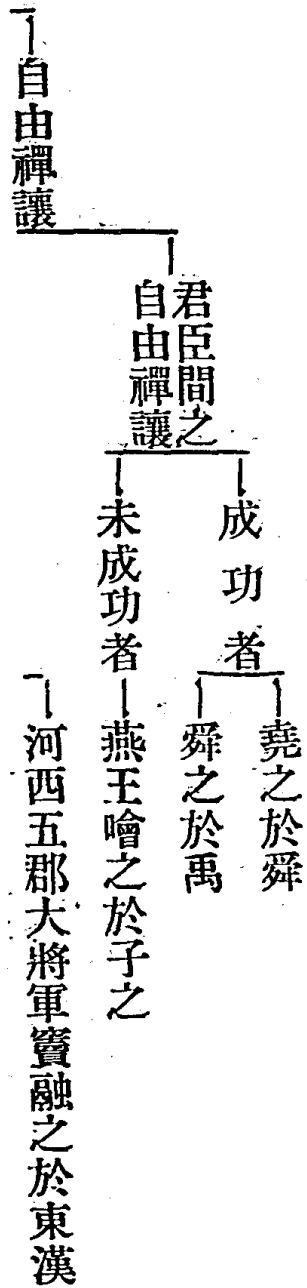 自由禪讓
君臣間之
自由禪讓
成功者
堯之於舜
舜之於禹
未成功者
燕王噲之於子之
河西五郡大將軍竇融之於東漢